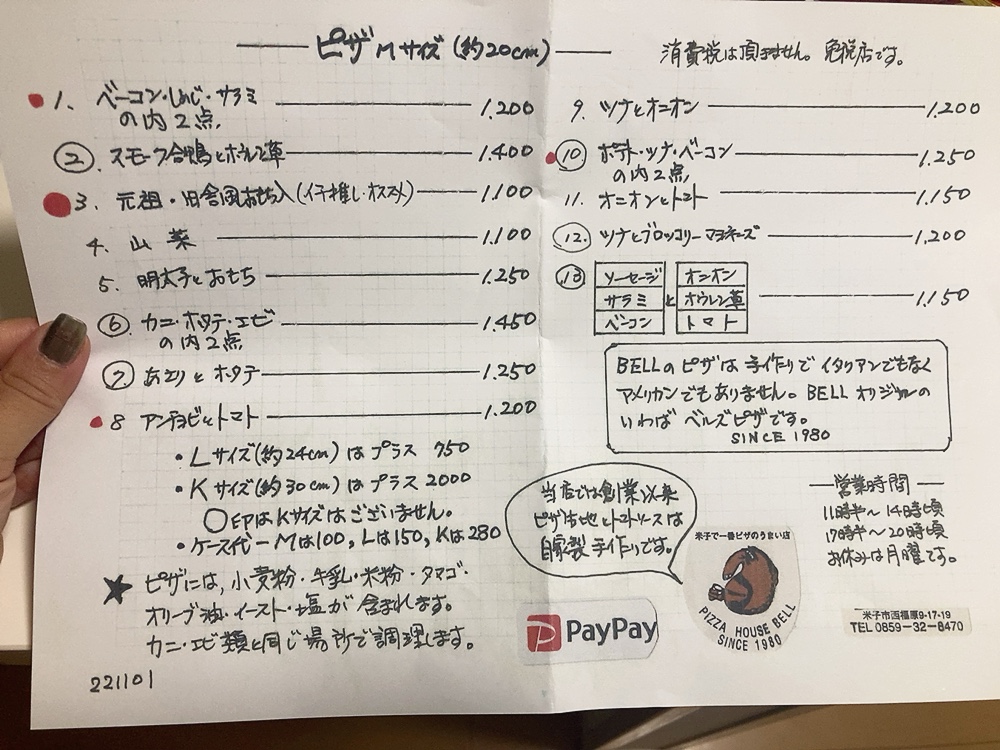 ピザ Mサイズ (約20cm)
消費税は頂きません。免税店です。
1. ベーコン・しめじ・サラミ 1.200
の内2点
② スモーク合鴨とホウレン草 1.400
3. 元祖・田舎風おもち入(イチ推し・オススメ) 1.100
4. 山菜 1.100
5. 明太子とおもち 1.250
⑥ カニ・ホタテ・エビ 1.450
の内2点
⑦ あさりとホタテ 1.250
8 アンチョビとトマト 1.200
・Lサイズ(約24cm)はプラス 750
・Kサイズ(約30cm)はプラス 2000
○印はKサイズはございません。
・ケース代ーMは100, Lは150, Kは280
★ ピザには, 小麦粉・牛乳・米粉・タマゴ・
オリーブ油・イースト・塩が含まれます。
カニ・エビ類と同じ場所で調理します。
221101
9. ツナとオニオン 1.200
⑩ ポテト・ツナ・ベーコン 1.250
の内2点
11. オニオンとトマト 1.150
⑫. ツナとブロッコリーマヨネーズ 1.200
⑬ ソーセージ オニオン
サラミ と ホウレン草 1.150
ベーコン トマト
BELLのピザは手作りでイタリアンでもなく
アメリカンでもありません。BELLオリジナルの
いわばベルズピザです。
SINCE 1980
当店では創業以来
ピザ生地とトマトソースは
自家製手作りです。
米子で一番ピザのうまい店
PIZZA HOUSE BELL
SINCE 1980
PayPay
営業時間
11時半〜14時頃
17時半〜20時頃
お休みは月曜です。
米子市西福原9-17-19
TEL 0859-32-8470